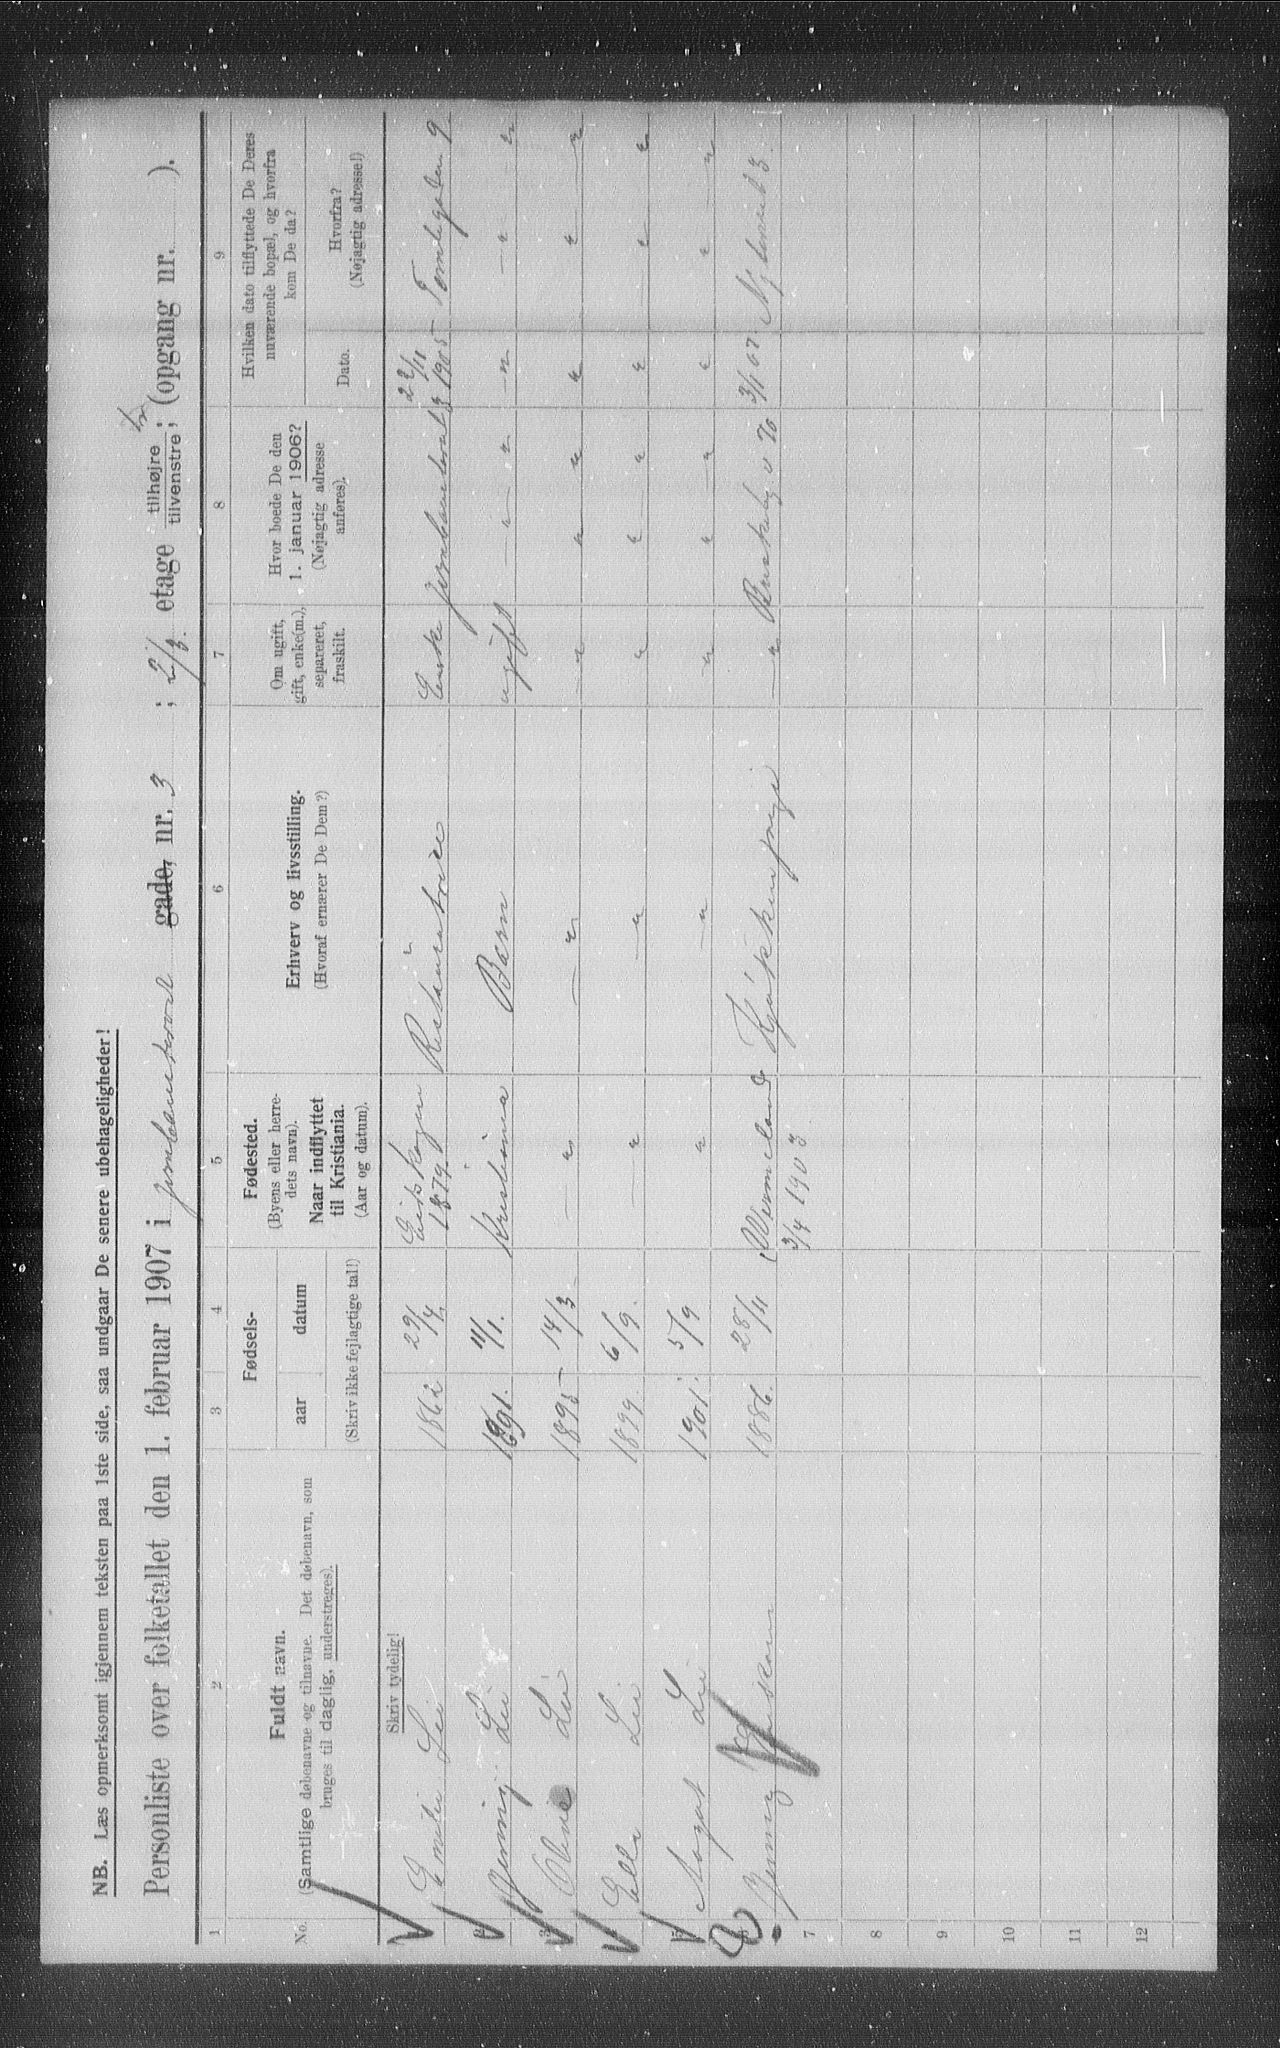 NB. Læs opmerksomt igjennem teksten paa 1ste side, saa undgaar De senere ubehageligheder!
Personliste over folketallet den 1. februar 1907 i Jernbanetorvet gade, nr. 3 ; 2/3. etage tilhøjre tilvenstre; (opgang nr. ).
1 2 3 4 5 6 7 8 9
No.
Fuldt navn.
(Samtlige døbenavne og tilnavne. Det døbenavn, som
bruges til daglig, understreges).
Skriv tydelig!
Fødsels-
aar datum
(Skriv ikke fejlagtige tal!)
Fødested.
(Byens eller herre-
dets navn).
Naar indflyttet
til Kristiania.
(Aar og datum).
Erhverv og livsstilling.
(Hvoraf ernærer De Dem?)
Om ugift,
gift, enke(m.),
separeret,
fraskilt.
Hvor boede De den
1. januar 1906?
(Nøjagtig adresse
anføres).
Hvilken dato tilflyttede De Deres
nuværende bopæl, og hvorfra
kom De da?
Dato.
Hvorfra?
(Nøjagtig adresse!)
Emilie Lie 1862 29/4. Eidskogen 1879 Enke Jernbanetorvet 3 22/11 1905 9
2 Jenny Lie 1891. 11/1. Kristiania Barn ugift " " " " "
3 Lie 1895 14/3 " " " " " " " "
Ella Lie 1899. 6/9. " " " " " " " "
5 Aagot Lie 1901. 5/9 " " " " " " " "
6 Jenny 1886. 28/11 Wermeland 3/4 1903 Kjøkkenpige " 3/1 07.
7
8
9
10
11
12